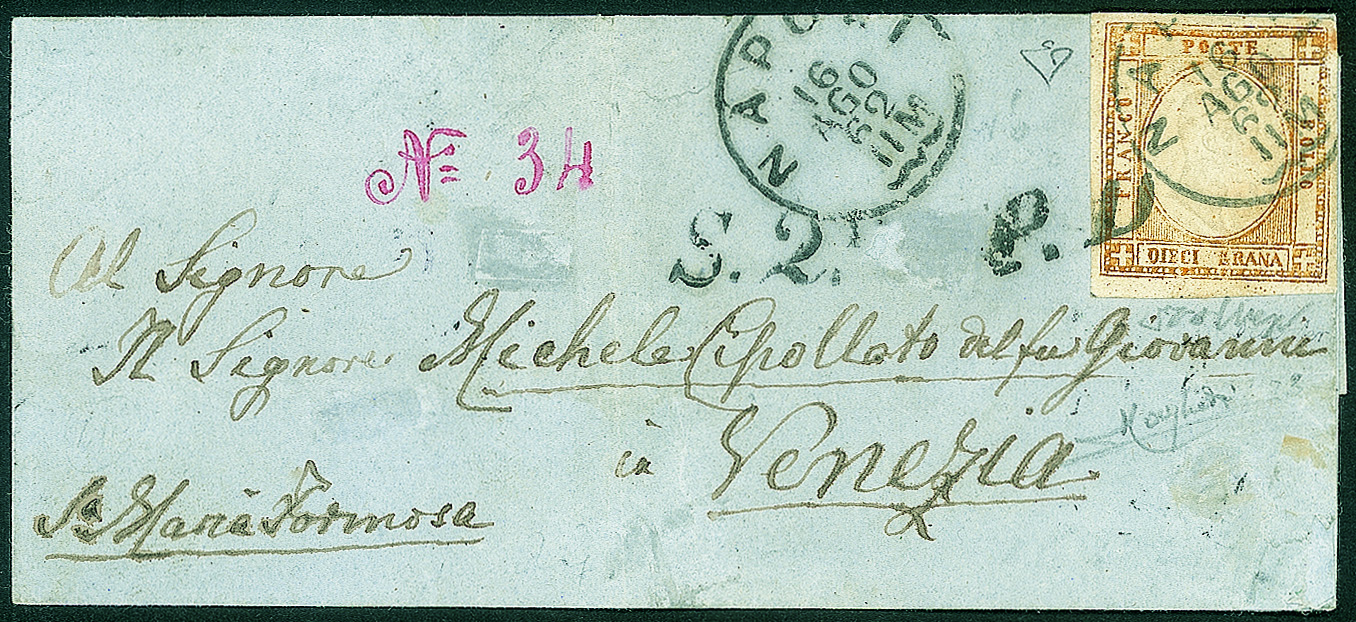 NAPOLI
16
AGO
62
11M
POSTE
FRANCO
BOLLO
DIECI GRANA
NA
16
AGO
6
11M
Nº 34
S. 2. P. D
Al Signore
Il Signore Michele Cipollato del fu Giovanni
in Venezia
Sa Maria Formosa